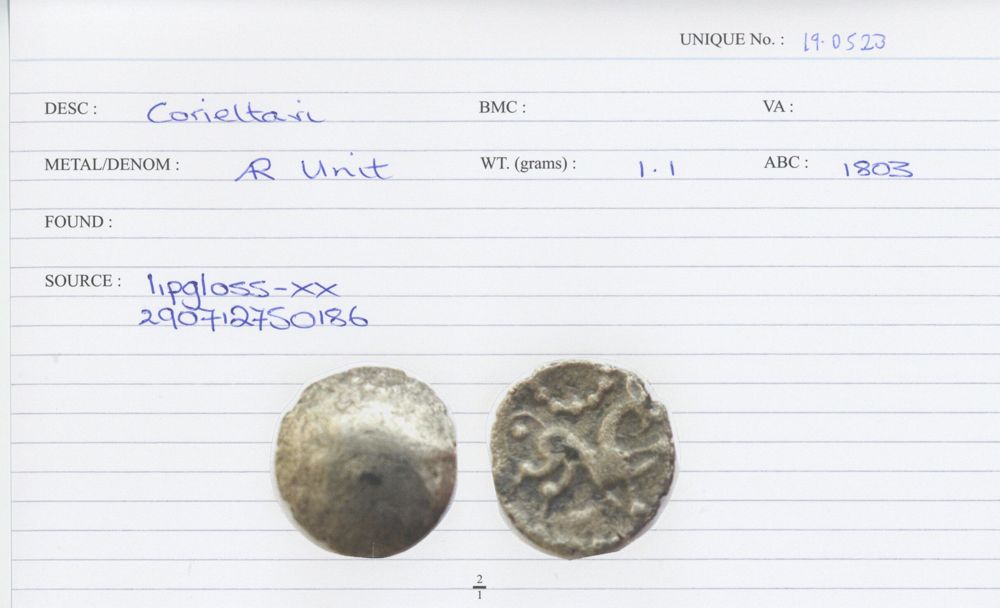 UNIQUE No. : 19.0523
DESC : Corieltavi BMC : VA :
METAL/DENOM : AR Unit WT. (grams) : 1.1 ABC : 1803
FOUND :
SOURCE : lipgloss-xx
290712750186
2
1